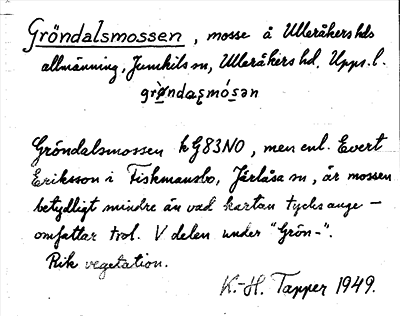 Gröndalsmossen, mosse å Ulleråkers hds
allmänning, Jumkils sn, Ulleråkers hd. Upps. l.
Gröndalsmossen k G83NO, men enl. Evert
Eriksson i Fiskmansbo, Järlåsa sn, är mossen
betydligt mindre än vad kartan tycks ange –
omfattar trol. V delen under "Grön-".
Rik vegetation.
K.-H. Tapper 1949.